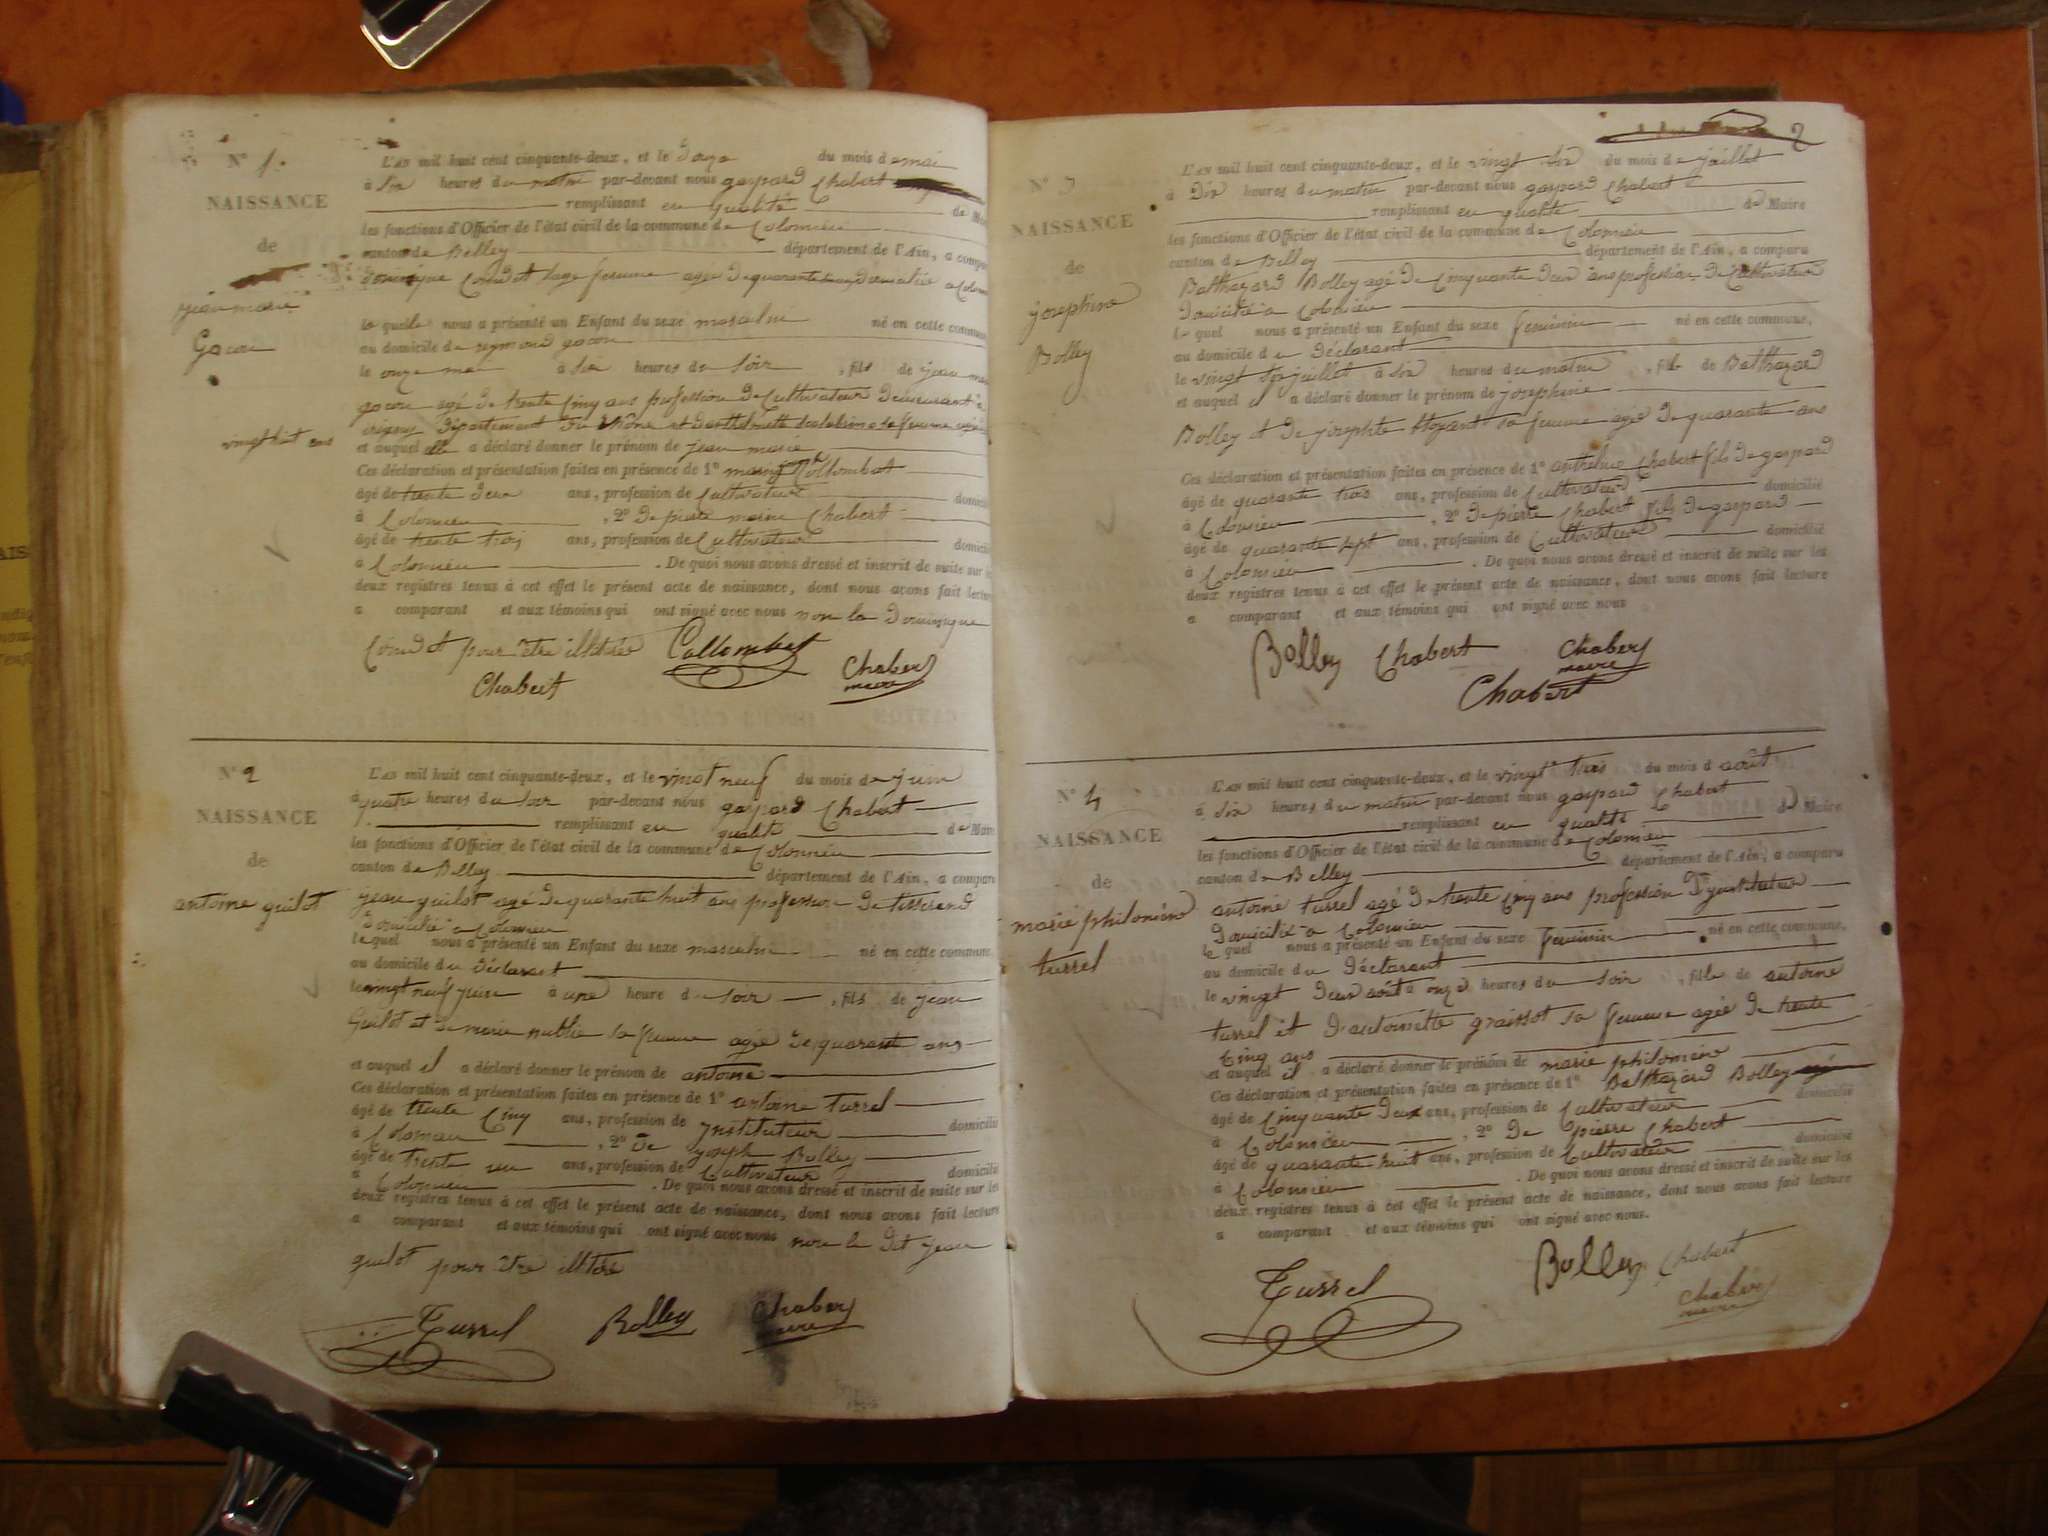 N° 1.
NAISSANCE
de
jean marie
Gocon
vingt huit ans
L'AN mil huit cent cinquante-deux, et le Douze du mois de mai
à Six heures du matin par-devant nous gaspard Chabert
remplissant en qualité de Mai
les fonctions d'Officier de l'état civil de la commune de Colomieu
canton de Belley département de l'Ain, a compa
Dominique Condet sage femme agée de quarante domicilié a Colom
la quelle nous a présenté un Enfant du sexe masculin né en cette commun
au domicile de reymond gocon
le onze mai à Six heures du Soir , fils de jean ma
gocon agé de trente Cinq ans profession de Cultivateur demeurant à
département du Rhône et Barthelmette sa femme
et auquel elle a déclaré donner le prénom de jean marie
Ces déclaration et présentation faites en présence de 1° Collombat
âgé de trente deux ans, profession de Cultivateur domicil
à Colomieu , 2° de pierre marin Chabert
âgé de trente trois ans, profession de Cultivateur domicil
à Colomieu . De quoi nous avons dressé et inscrit de suite sur les
deux registres tenus à cet effet le présent acte de naissance, dont nous avons fait lecture
a comparant et aux témoins qui ont signé avec nous non la Dominique
Condet pour être illétrée Collombat
Chabert Chabert
maire
N° 2
NAISSANCE
de
antoine guilot
L'AN mil huit cent cinquante-deux, et le vingt neuf du mois de juin
à quatre heures du Soir par-devant nous gaspard Chabert
remplissant en qualité de Maire
les fonctions d'Officier de l'état civil de la commune de Colomieu
canton de Belley département de l'Ain, a comparu
jean guilot agé de quarante huit ans profession de tisserand
domicilié a Colomieu
le quel nous a présenté un Enfant du sexe masculin né en cette commune,
au domicile du Déclarant
le vingt neuf juin à une heure du Soir , fils de jean
Guilot et de marie sa femme agée de quarante ans
et auquel il a déclaré donner le prénom de antoine
Ces déclaration et présentation faites en présence de 1° antoine turrel
âgé de trente Cinq ans, profession de Instituteur domicilié
à Colomieu , 2° de joseph Bolley
âgé de trente un ans, profession de Cultivateur domicilié
à Colomieu . De quoi nous avons dressé et inscrit de suite sur les
deux registres tenus à cet effet le présent acte de naissance, dont nous avons fait lecture
a comparant et aux témoins qui ont signé avec nous non le dit jean
guilot pour être illétré
Turrel Bolley Chabert
maire
2
N° 3
NAISSANCE
de
josephine
Bolley
L'AN mil huit cent cinquante-deux, et le vingt Six du mois de juillet
à Dix heures du matin par-devant nous gaspard Chabert
remplissant en qualité de Maire
les fonctions d'Officier de l'état civil de la commune de Colomieu
canton de Belley département de l'Ain, a comparu
Balthazard Bolley agé de Cinquante deux ans profession de Cultivateur
domicilié a Colomieu
le quel nous a présenté un Enfant du sexe feminin né en cette commune,
au domicile du Déclarant
le vingt Six juillet à Six heures du matin , fille de Balthazard
et auquel il a déclaré donner le prénom de josephine
Bolley et de josephte sa femme agée de quarante ans
Ces déclaration et présentation faites en présence de 1° anthelme Chabert fils de gaspard
âgé de quarante trois ans, profession de Cultivateur domicilié
à Colomieu , 2° de pierre Chabert fils de gaspard
âgé de quarante sept ans, profession de Cultivateur domicilié
à Colomieu . De quoi nous avons dressé et inscrit de suite sur les
deux registres tenus à cet effet le présent acte de naissance, dont nous avons fait lecture
a comparant et aux témoins qui ont signé avec nous
Bolley Chabert Chabert
maire
Chabert
N° 4
NAISSANCE
de
marie philomène
turrel
L'AN mil huit cent cinquante-deux, et le vingt trois du mois d août
à Six heures du matin par-devant nous gaspard Chabert
remplissant en qualité de Maire
les fonctions d'Officier de l'état civil de la commune de Colomieu
canton de Belley département de l'Ain, a comparu
antoine turrel agé de trente Cinq ans profession d'ynstituteur
domicilié a Colomieu
le quel nous a présenté un Enfant du sexe feminin né en cette commune,
au domicile du Déclarant
le vingt deux août à onze heures du Soir , fille de antoine
turrel et d'antoinette graissot sa femme agée de trente
Cinq ans
et auquel il a déclaré donner le prénom de marie philomène
Ces déclaration et présentation faites en présence de 1° Balthazard Bolley
âgé de Cinquante deux ans, profession de Cultivateur domicilié
à Colomieu , 2° de pierre Chabert
âgé de quarante huit ans, profession de Cultivateur domicilié
à Colomieu . De quoi nous avons dressé et inscrit de suite sur les
deux registres tenus à cet effet le présent acte de naissance, dont nous avons fait lecture
a comparant et aux témoins qui ont signé avec nous.
Turrel Bolley Chabert
Chabert
maire